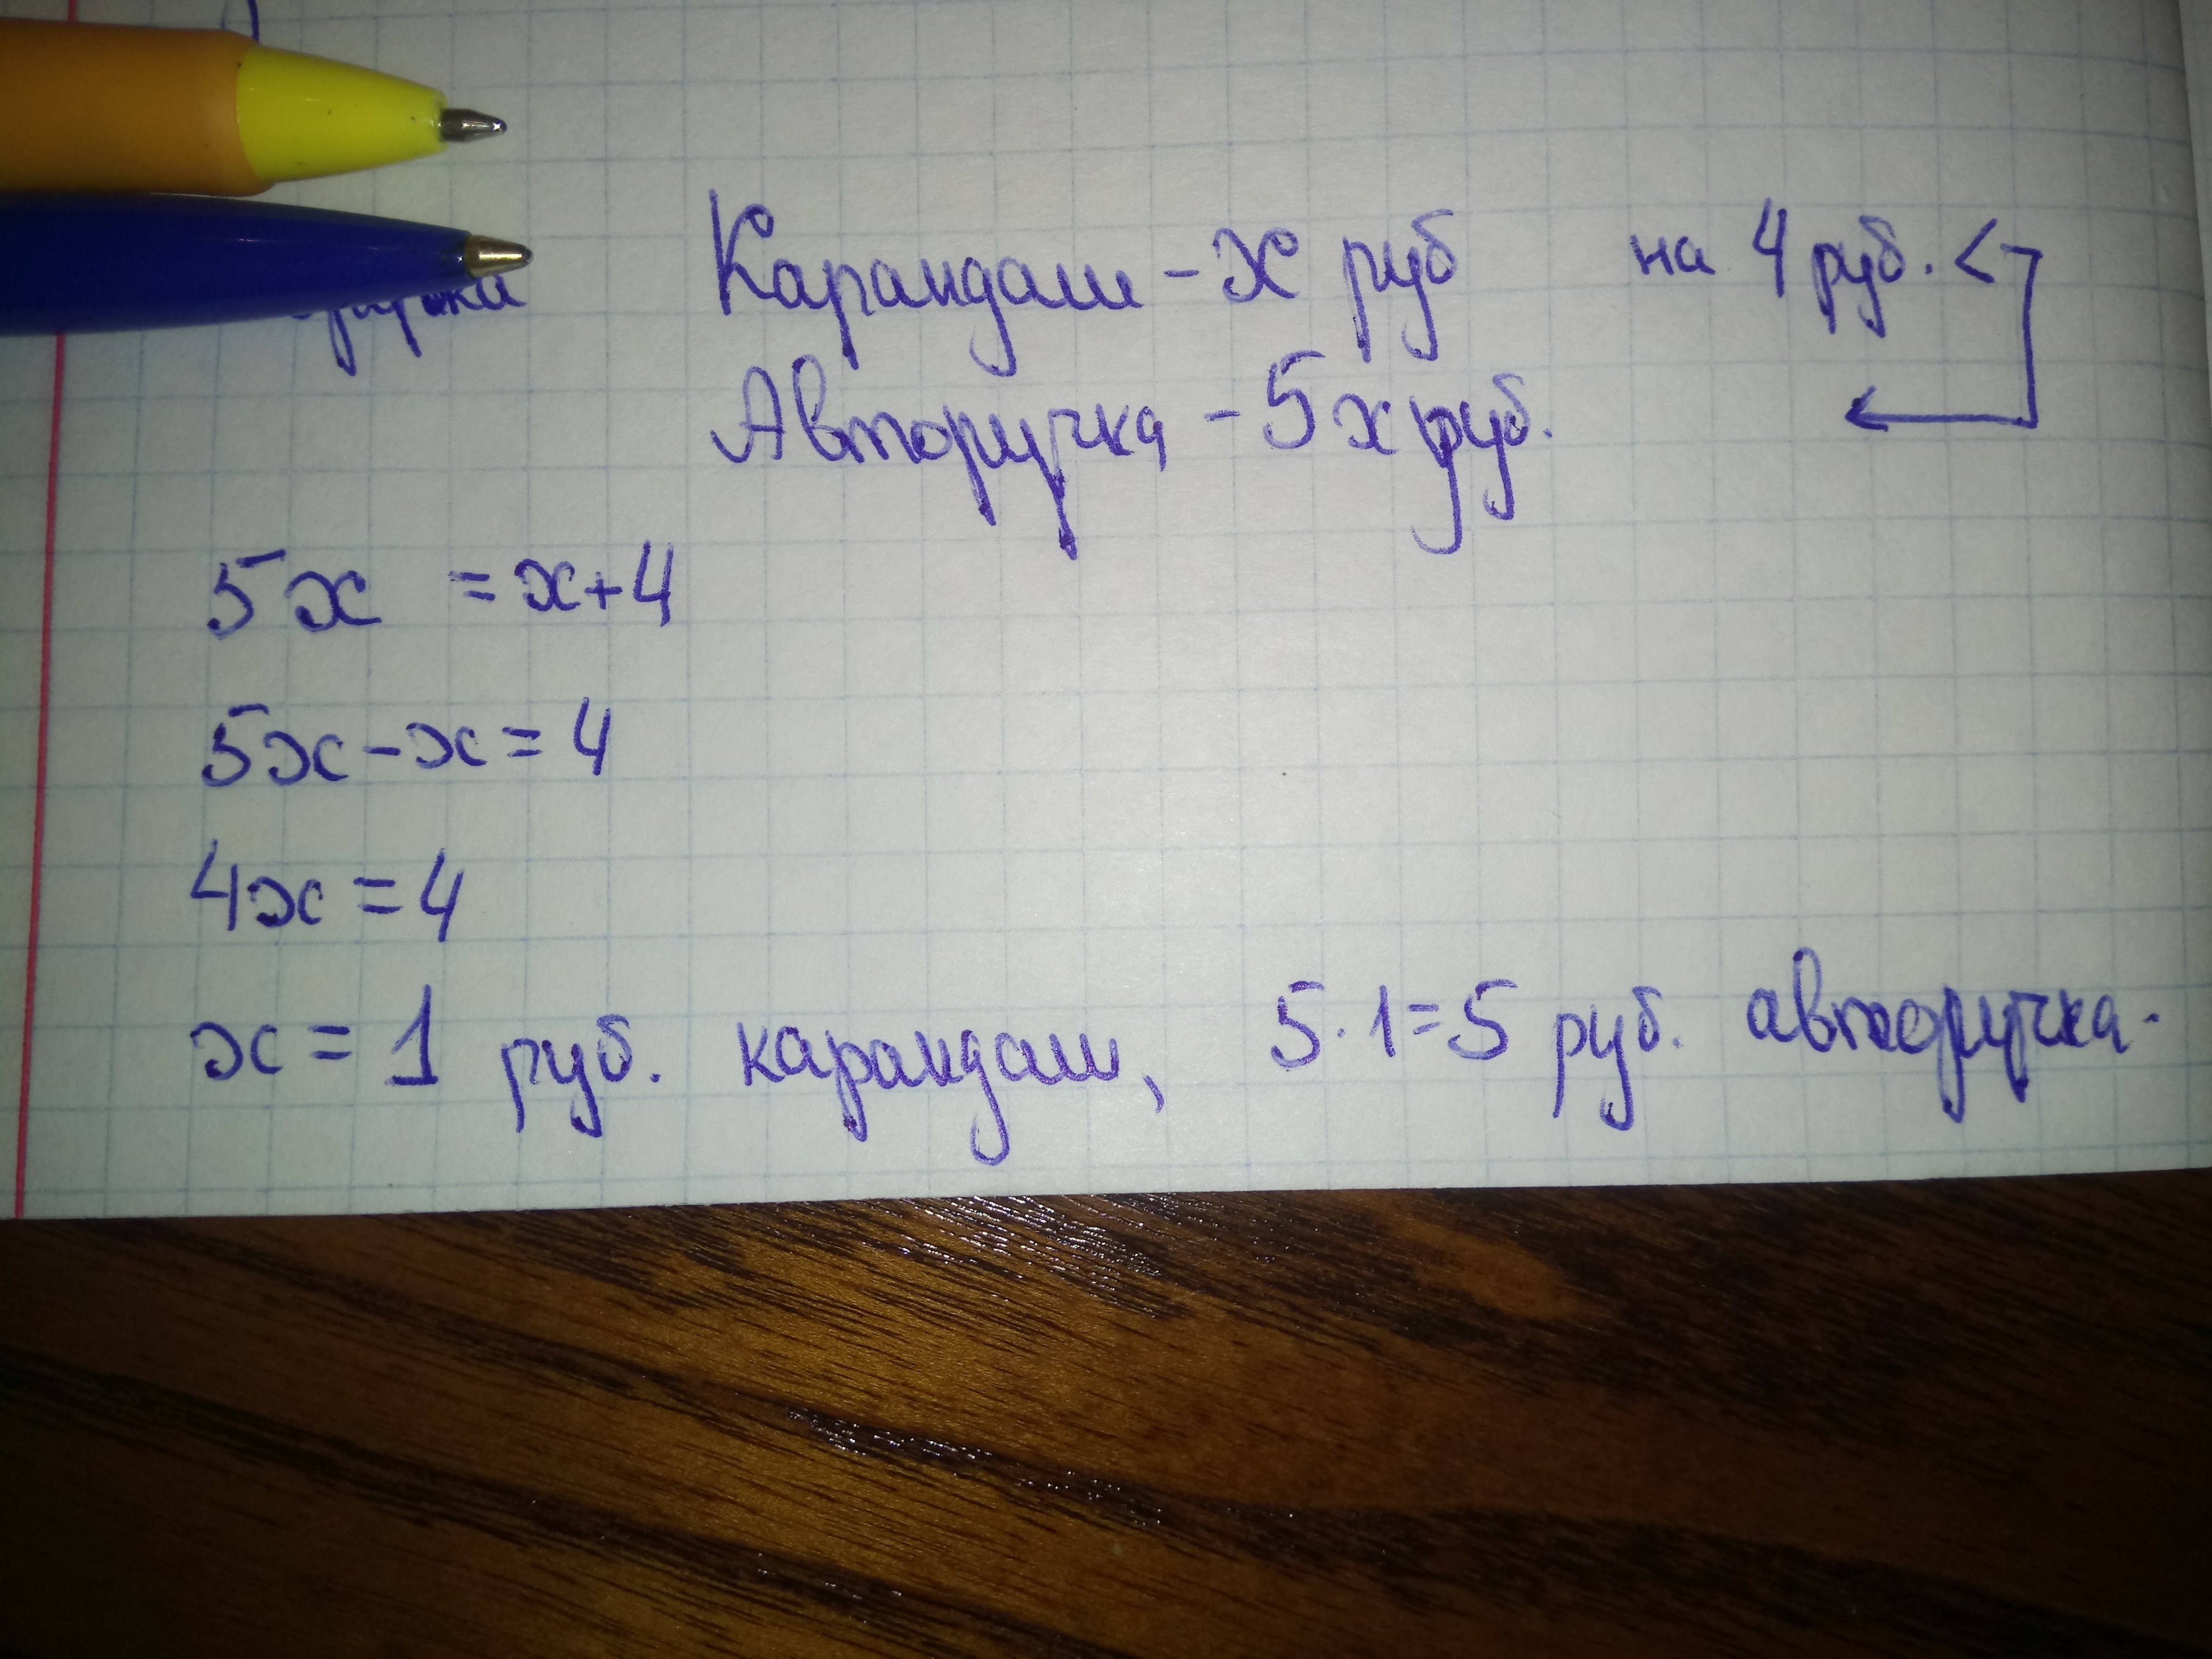 Карандаш - x руб на 4 руб. <
Авторучка - 5x руб.
5x = x+4
5x-x=4
4x=4
x=1 руб. карандаш, 5·1=5 руб. авторучка.